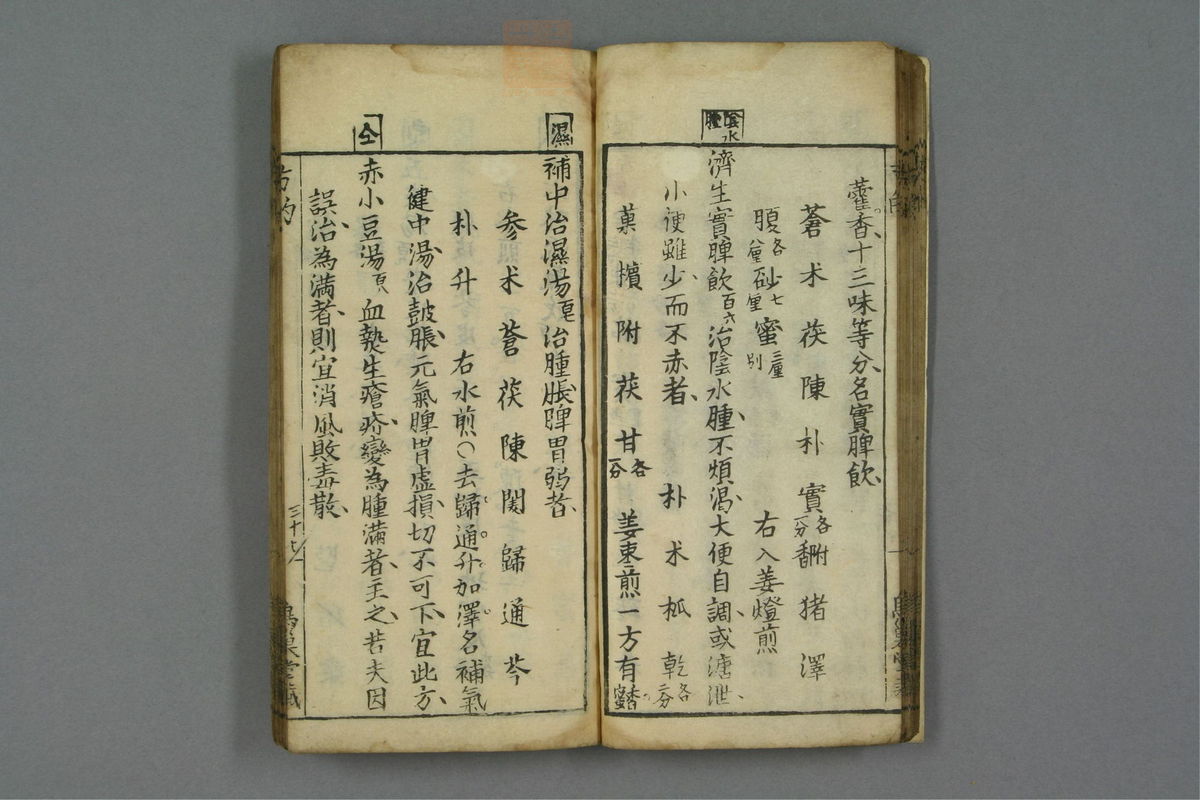 藿香十三味等分名實脾飲
蒼术茯陳朴實各一分附猪澤
腹各八厘砂七厘蜜三厘別右入姜燈煎
陰水腫
濟生實脾飲百六治陰水腫不煩渴大便自調或溏泄
小便雖少而不赤者朴术瓜乾各二分
菓檳附茯甘各一分姜棗煎一方有香蜜
濕
補中治濕湯治腫脹脾胃弱者
参术蒼茯陳関歸通芩
朴升右水煎○去歸通升加澤名補氣
健中湯治鼓脹元氣脾胃虛損切不可下宜此方
仝
赤小豆湯血熱生瘡疥變為腫滿者主之若夫因
誤治為滿者則宜消風敗毒散
三十七
方的